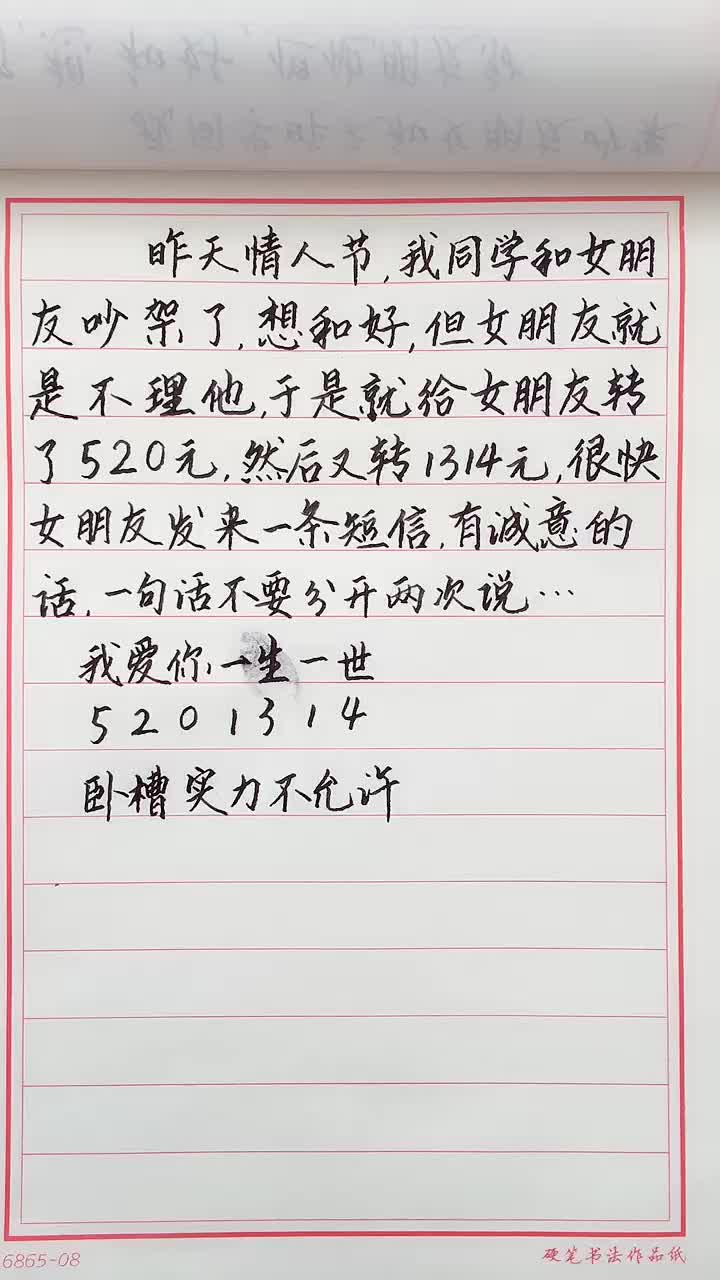 昨天情人节,我同学和女朋
友吵架了,想和好,但女朋友就
是不理他,于是就给女朋友转
了520元,然后又转1314元,很快
女朋友发来一条短信,有诚意的
话,一句话不要分开两次说…
我爱你,一生一世
5 2 0 1 3 1 4
卧槽实力不允许
6865-08
硬笔书法作品纸